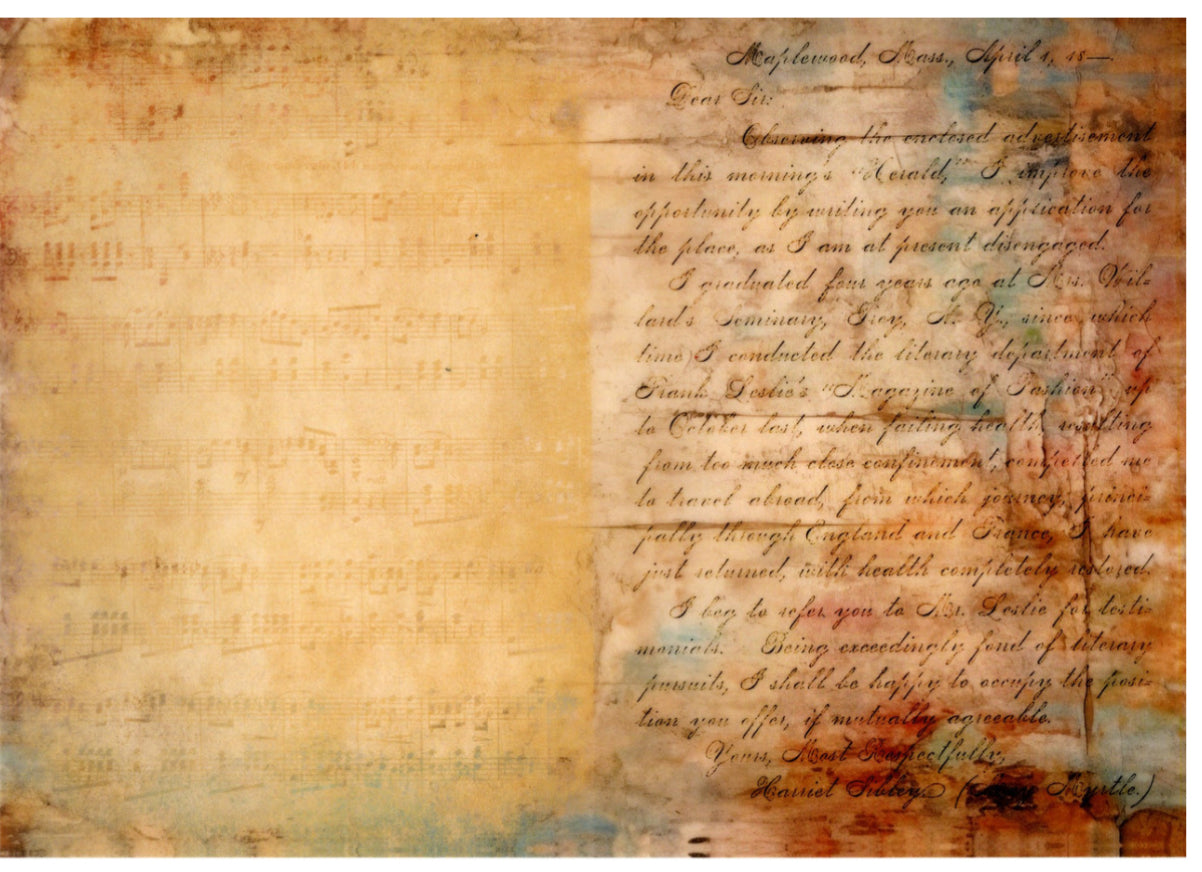 Maplewood, Mass., April 1, 18—.
Dear Sir:
Observing the enclosed advertisement
in this morning's "Herald," I improve the
opportunity by writing you an application for
the place, as I am at present disengaged.
I graduated four years ago at Mrs. Wil-
lard's Seminary, Troy, N. Y., since which
time I conducted the literary department of
Frank Leslie's "Magazine of Fashion" up
to October last, when failing health, resulting
from too much close confinement, compelled me
to travel abroad, from which journey, princi-
pally through England and France, I have
just returned, with health completely restored.
I beg to refer you to Mr. Leslie for testi-
monials. Being exceedingly fond of literary
pursuits, I shall be happy to occupy the posi-
tion you offer, if mutually agreeable.
Yours, Most Respectfully,
Harriet Sibley. ( Myrtle.)